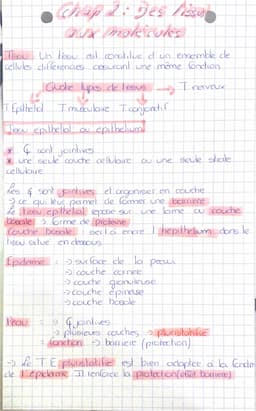 Chap 2 : Des tissus
aux molécules
Tissu : Un tissu est constitué d'un ensemble de
cellules différenciées assurant une même fonction
Quatre types de tissus → T nerveux
T. Epithélial T. musculaire T. conjonctif
Tissu épithélial ou épithélium
* ¢ sont jointives
* une seule couche cellulaire ou une seule strate
cellulaire
Les ¢ sont jointives et organiser en couche
→ ce qui leur permet de former une barrière
Le tissu épithélial repose sur une lame ou couche
basale → formé de protéine
Couche basale : sert à ancré l'hépithélium dans le
tissu situé en dessous
Epiderme : → surface de la peau
→ couche cornée
→ couche granuleuse
→ couche épineuse
→ couche basale
Peau : → ¢ jointives
→ plusieurs couches → pluristatifié
fonction → barrière (protection)
→ Le T E pluristatifié est bien adaptée à la fonction
de l'épiderme Il renforce la protection (effet barrière)